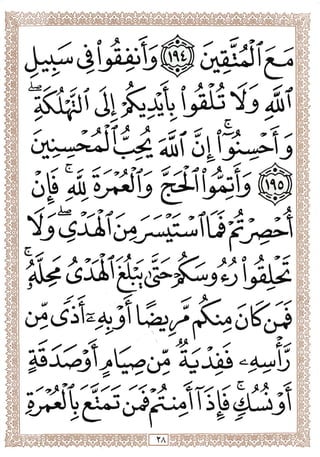 مَعَ ٱلْمُتَّقِينَ ١٩٤ وَأَنفِقُوا۟ فِى سَبِيلِ
ٱللَّهِ وَلَا تُلْقُوا۟ بِأَيْدِيكُمْ إِلَى ٱلتَّهْلُكَةِ ۖ
وَأَحْسِنُوٓا۟ ۛ إِنَّ ٱللَّهَ يُحِبُّ ٱلْمُحْسِنِينَ
١٩٥ وَأَتِمُّوا۟ ٱلْحَجَّ وَٱلْعُمْرَةَ لِلَّهِ ۚ فَإِنْ
أُحْصِرْتُمْ فَمَا ٱسْتَيْسَرَ مِنَ ٱلْهَدْىِ ۖ وَلَا
تَحْلِقُوا۟ رُءُوسَكُمْ حَتَّىٰ يَبْلُغَ ٱلْهَدْىُ مَحِلَّهُۥ ۚ
فَمَن كَانَ مِنكُم مَّرِيضًا أَوْ بِهِۦٓ أَذًى مِّن
رَّأْسِهِۦ فَفِدْيَةٌ مِّن صِيَامٍ أَوْ صَدَقَةٍ
أَوْ نُسُكٍ ۚ فَإِذَآ أَمِنتُمْ فَمَن تَمَتَّعَ بِٱلْعُمْرَةِ
٢٨